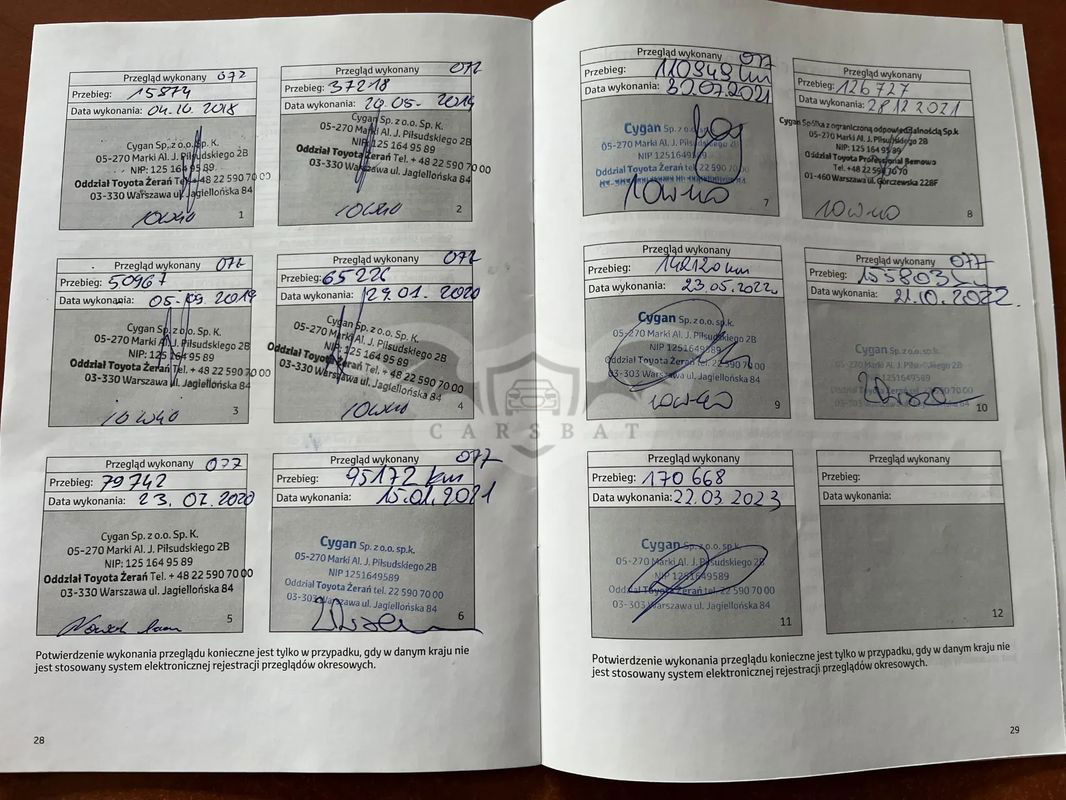 Przegląd wykonany 072
Przebieg: 15874
Data wykonania: 04.10 2018
Cygan Sp. z o.o. Sp. K.
05-270 Marki Al. J. Piłsudskiego 2B
NIP: 125 164 95 89
Oddział Toyota Żerań Tel. + 48 22 590 70 00
03-330 Warszawa ul. Jagiellońska 84
10W40
1
Przegląd wykonany 072
Przebieg: 37218
Data wykonania: 20.05- 2019
Cygan Sp. z o.o. Sp. K.
05-270 Marki Al. J. Piłsudskiego 2B
NIP: 125 164 95 89
Oddział Toyota Żerań Tel. + 48 22 590 70 00
03-330 Warszawa ul. Jagiellońska 84
10W40
2
Przegląd wykonany 072
Przebieg: 50967
Data wykonania: 05-09 2019
Cygan Sp. z o.o. Sp. K.
05-270 Marki Al. J. Piłsudskiego 2B
NIP: 125 164 95 89
Oddział Toyota Żerań Tel. + 48 22 590 70 00
03-330 Warszawa ul. Jagiellońska 84
10W40
3
Przegląd wykonany 072
Przebieg: 65226
Data wykonania: 29.01. 2020
Cygan Sp. z o.o. Sp. K.
05-270 Marki Al. J. Piłsudskiego 2B
NIP: 125 164 95 89
Oddział Toyota Żerań Tel. + 48 22 590 70 00
03-330 Warszawa ul. Jagiellońska 84
10W40
4
Przegląd wykonany 077
Przebieg: 79742
Data wykonania: 23. 07. 2020
Cygan Sp. z o.o. Sp. K.
05-270 Marki Al. J. Piłsudskiego 2B
NIP: 125 164 95 89
Oddział Toyota Żerań Tel. + 48 22 590 70 00
03-330 Warszawa ul. Jagiellońska 84
5
Przegląd wykonany 077
Przebieg: 95172 km
Data wykonania: 15.01.2021
Cygan Sp. z o.o. sp.k.
05-270 Marki Al. J. Piłsudskiego 2B
NIP 1251649589
Oddział Toyota Żerań tel. 22 590 70 00
03-303 Warszawa ul. Jagiellońska 84
6
Potwierdzenie wykonania przeglądu konieczne jest tylko w przypadku, gdy w danym kraju nie
jest stosowany system elektronicznej rejestracji przeglądów okresowych.
28
Przegląd wykonany 077
Przebieg: 110949 km
Data wykonania: 30.07.2021
Cygan Sp. z o.o. sp.k.
05-270 Marki Al. J. Piłsudskiego 2B
NIP 1251649589
Oddział Toyota Żerań tel. 22 590 70 00
10W40
7
Przegląd wykonany
Przebieg: 126727
Data wykonania: 28.12 2021
Cygan Spółka z ograniczoną odpowiedzialnością Sp.k
05-270 Marki Al. J. Piłsudskiego 2B
NIP: 125 164 95 89
Oddział Toyota Professional Bemowo
Tel. +48 22 590 70 70
01-460 Warszawa ul. Górczewska 228F
10W40
8
Przegląd wykonany
Przebieg: 142120 km
Data wykonania: 23.05.2022
Cygan Sp. z o.o. sp.k.
05-270 Marki Al. J. Piłsudskiego 2B
NIP 1251649589
Oddział Toyota Żerań tel. 22 590 70 00
03-303 Warszawa ul. Jagiellońska 84
10W40
9
Przegląd wykonany 077
Przebieg: 155803 km
Data wykonania: 21.10.2022.
Cygan Sp. z o.o. sp.k.
05-270 Marki Al. J. Piłsudskiego 2B
NIP 1251649589
10
Przegląd wykonany
Przebieg: 170 668
Data wykonania: 22.03 2023
Cygan Sp. z o.o. sp.k.
05-270 Marki Al. J. Piłsudskiego 2B
NIP 1251649589
Oddział Toyota Żerań tel. 22 590 70 00
03-303 Warszawa ul. Jagiellońska 84
11
Przegląd wykonany
Przebieg:
Data wykonania:
12
Potwierdzenie wykonania przeglądu konieczne jest tylko w przypadku, gdy w danym kraju nie
jest stosowany system elektronicznej rejestracji przeglądów okresowych.
29
CARSBAT